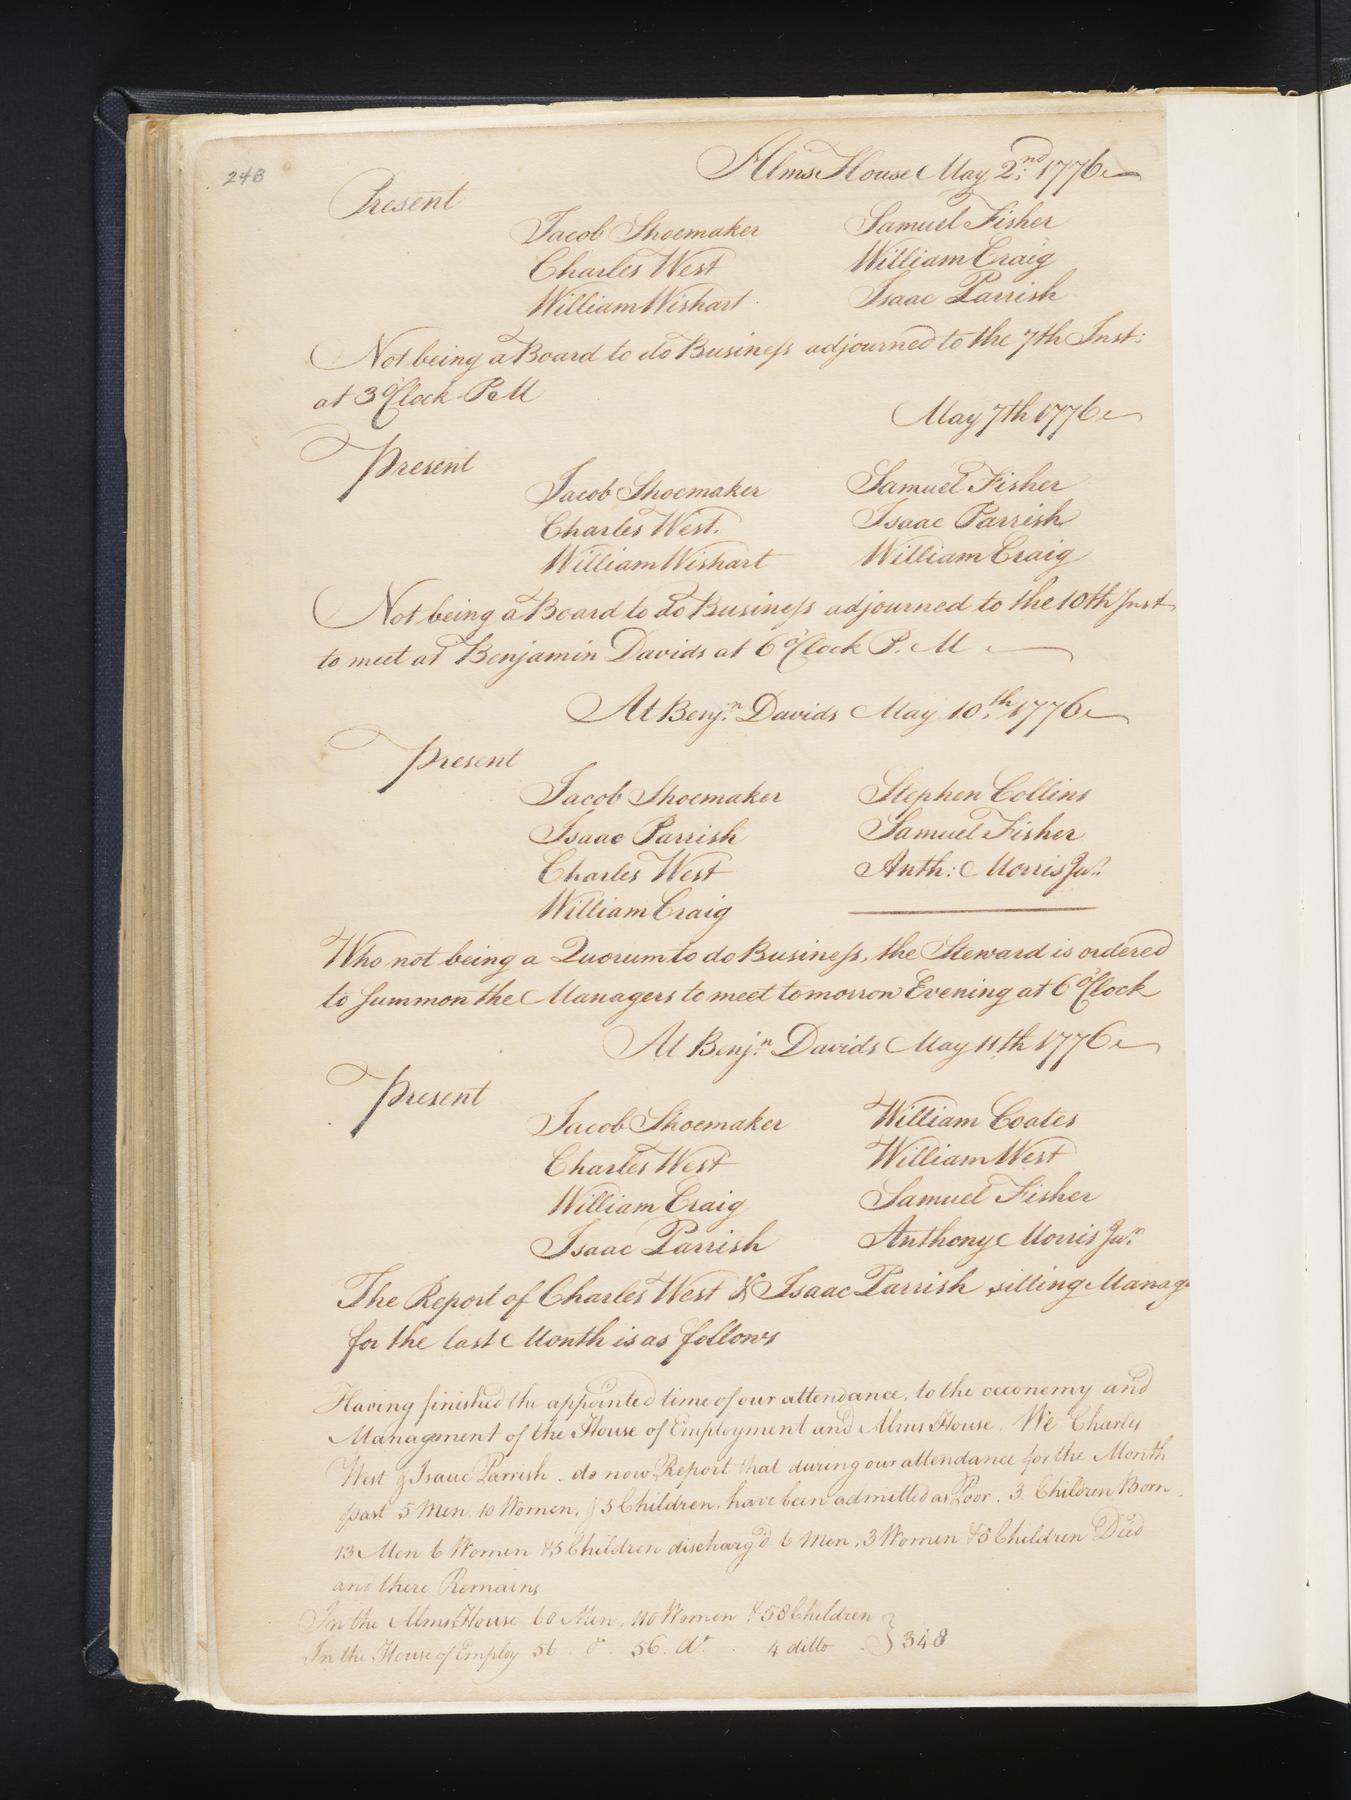 248
Alms House May 2nd: 1776
Present
Jacob Shoemaker Samuel Fisher
Charles West William Craig
William Wishart Isaac Parrish
Not being a Board to do Business adjourned to the 7th Inst:
at 3 oClock P M
May 7th 1776
Present
Jacob Shoemaker Samuel Fisher
Charles West. Isaac Parrish
William Wishart William Craig
Not being a Board to do Business adjourned to the 10th Inst
to meet at Benjamin Davids at 6 oClock P. M
At Benjn. Davids May 10th. 1776
Present
Jacob Shoemaker Stephen Collins
Isaac Parrish Samuel Fisher
Charles West Anth: Morris Junr.
William Craig
Who not being a Quorum to do Business, the Steward is ordered
to Summon the Managers to meet tomorrow Evening at 6 oClock
At Benjn. Davids May 11th 1776
Present
Jacob Shoemaker William Coates
Charles West William West
William Craig Samuel Fisher
Isaac Parrish Anthony Morris Junr.
The Report of Charles West & Isaac Parrish sitting Manag
for the last Month is as follows
Having finished the appointed time of our attendance, to the oeconemy and
Management of the House of Employment and Alms House. We Charles
West & Isaac Parrish do now Report that during our attendance for the Month
past 5 Men. 10 Women, & 5 Children, have been admitted as Poor. 3 Children Born
13 Men 6 Women & 5 Children discharg'd 6 Men, 3 Women & 3 Children Died
and there Remains
In the Alms House 60 Men. 110 Women & 58 Children
In the House of Employ 56 do. 56. do. 4 ditto } 348